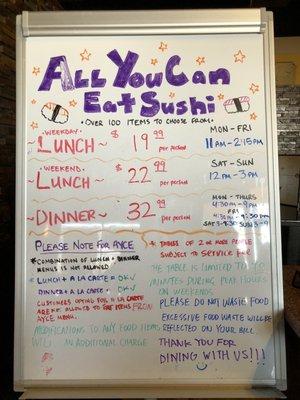 ALL YOU CAN
EAT SUSHI
• OVER 100 ITEMS TO CHOOSE FROM •
WEEKDAY
~LUNCH~ $ 19.99 per person
MON - FRI
11AM - 2:15PM
WEEKEND
~LUNCH~ $ 22.99 per person
SAT - SUN
12PM - 3PM
~DINNER~ 32.99 per person
MON - THURS
FRI
PLEASE NOTE FOR AYCE
* COMBINATION OF LUNCH + DINNER
MENUS IS NOT ALLOWED
LUNCH + A LA CARTE = OK
DINNER + A LA CARTE = OK
CUSTOMERS OPTING FOR A LA CARTE
ARE NOT ALLOWED TO FROM
AYCE MENU.
MODIFICATIONS TO ANY FOOD ITEMS
WILL AN ADDITIONAL CHARGE
* TABLES OF 2 OR MORE PEOPLE
SUBJECT TO SERVICE FEE
THE TABLE IS LIMITED TO
MINUTES DURING PEAK HOURS
ON WEEKENDS
PLEASE DO NOT WASTE FOOD
EXCESSIVE FOOD WASTE WILL BE
REFLECTED ON YOUR BILL
THANK YOU FOR
DINING WITH US!!!